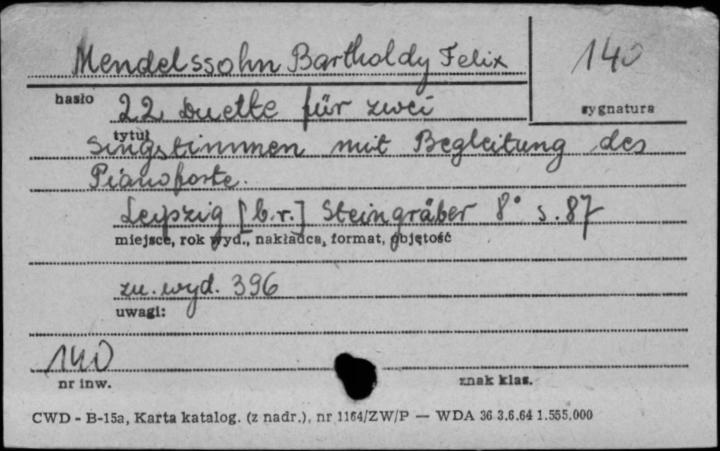 Mendelssohn Bartholdy Felix
140
hasło
22 Duette für zwei
sygnatura
tytuł
Singstimmen mit Begleitung des
Pianoforte.
Leipzig [b.r.] Steingräber 8° s. 87
miejsce, rok wyd., nakładca, format, objętość
zu. wyd. 396
uwagi:
140
nr inw.
znak klas.
CWD - B-15a, Karta katalog. (z nadr.), nr 1164/ZW/P — WDA 36 3.6.64 1.555.000